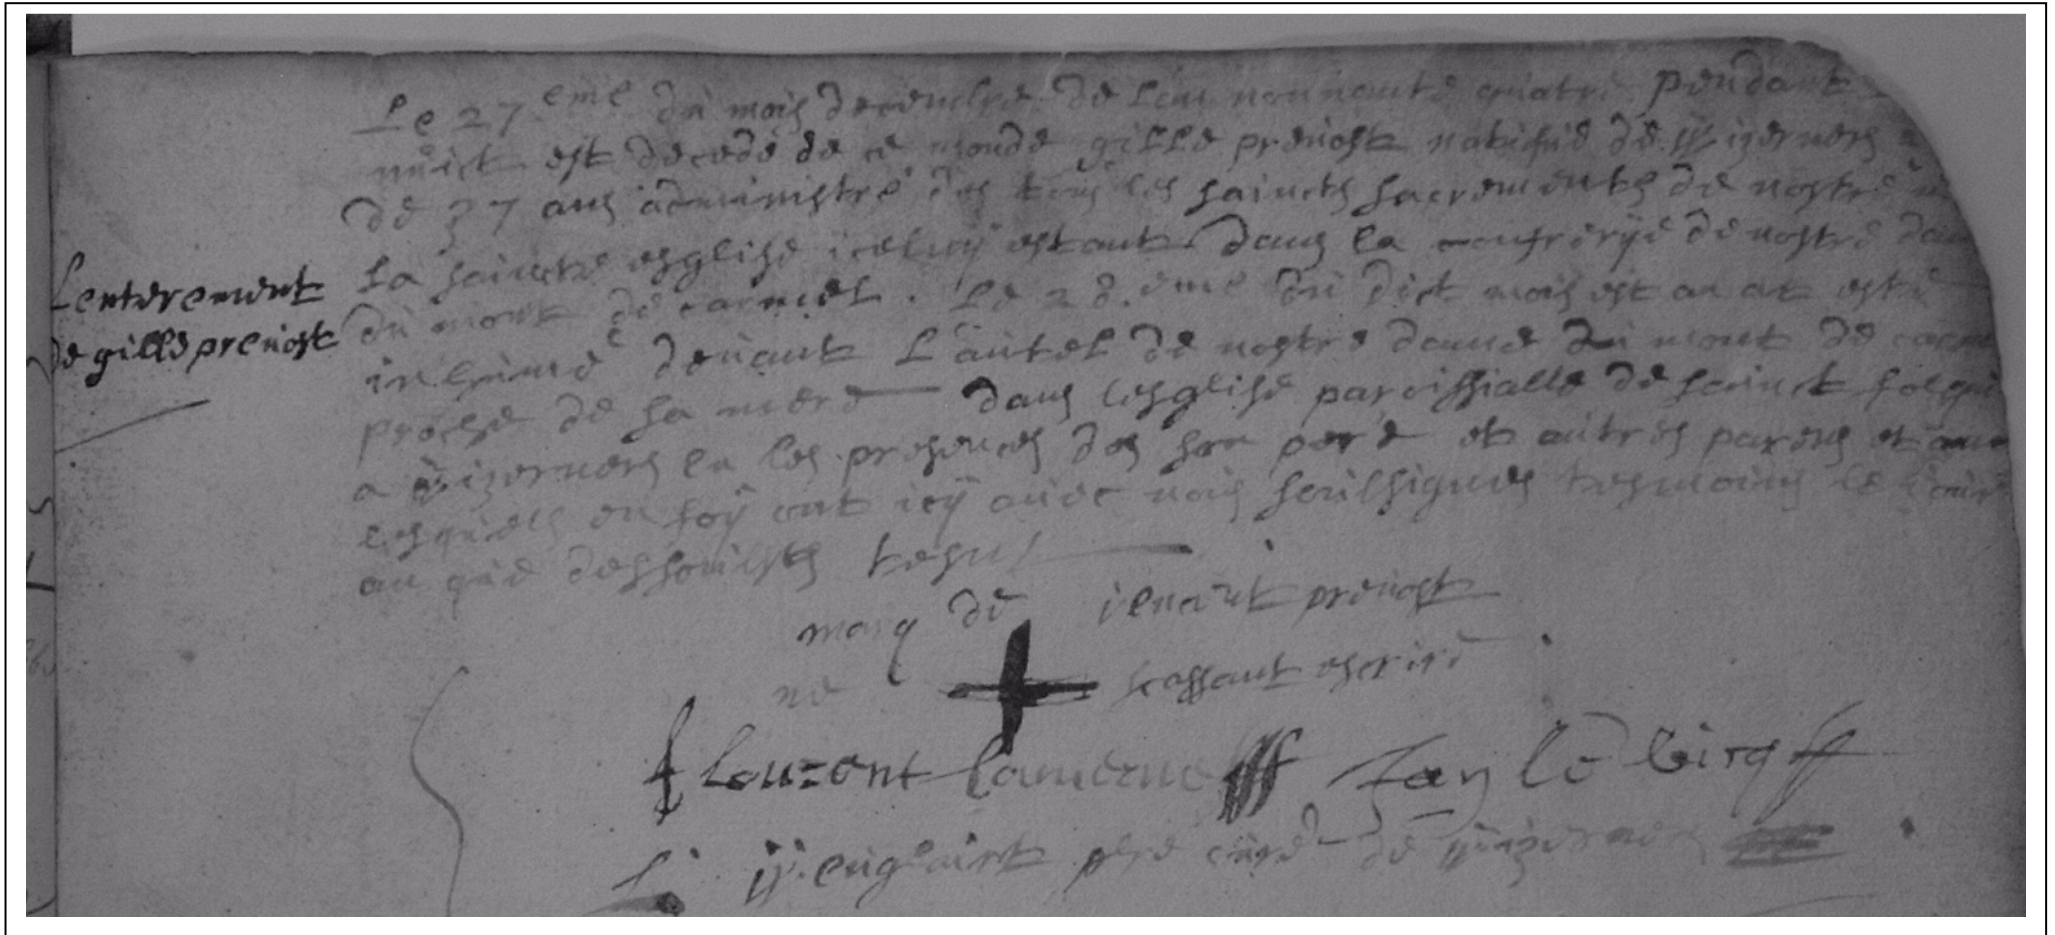 Le 27 eme du mois decembre de l'an nonnante quatre pendant
nuict est decedé de ce monde gille preuost natif de Wizernes
de 37 ans administré des tous les saincts sacrements de nostre
la saincte esglise iceluÿ estant dans la confrerÿe de nostre dam
du mont de carmel. Le 28.eme du dict mois est an at esté
inhumé deuant L'autel de nostre dame du mont de carme
proche de sa mere dans l'esglise paroissialle de sainct folqui
a Wizernes en les presences des son pere et autres parens et
lesquels en foÿ ont icÿ auec nous soussignes tesmoins le iour
an que dessous
Lenterement
de gille preuost
marq de ienart preuost
ne scassant escrire
flourent Jan le birq
W. englaint pbre curé de Wizernes